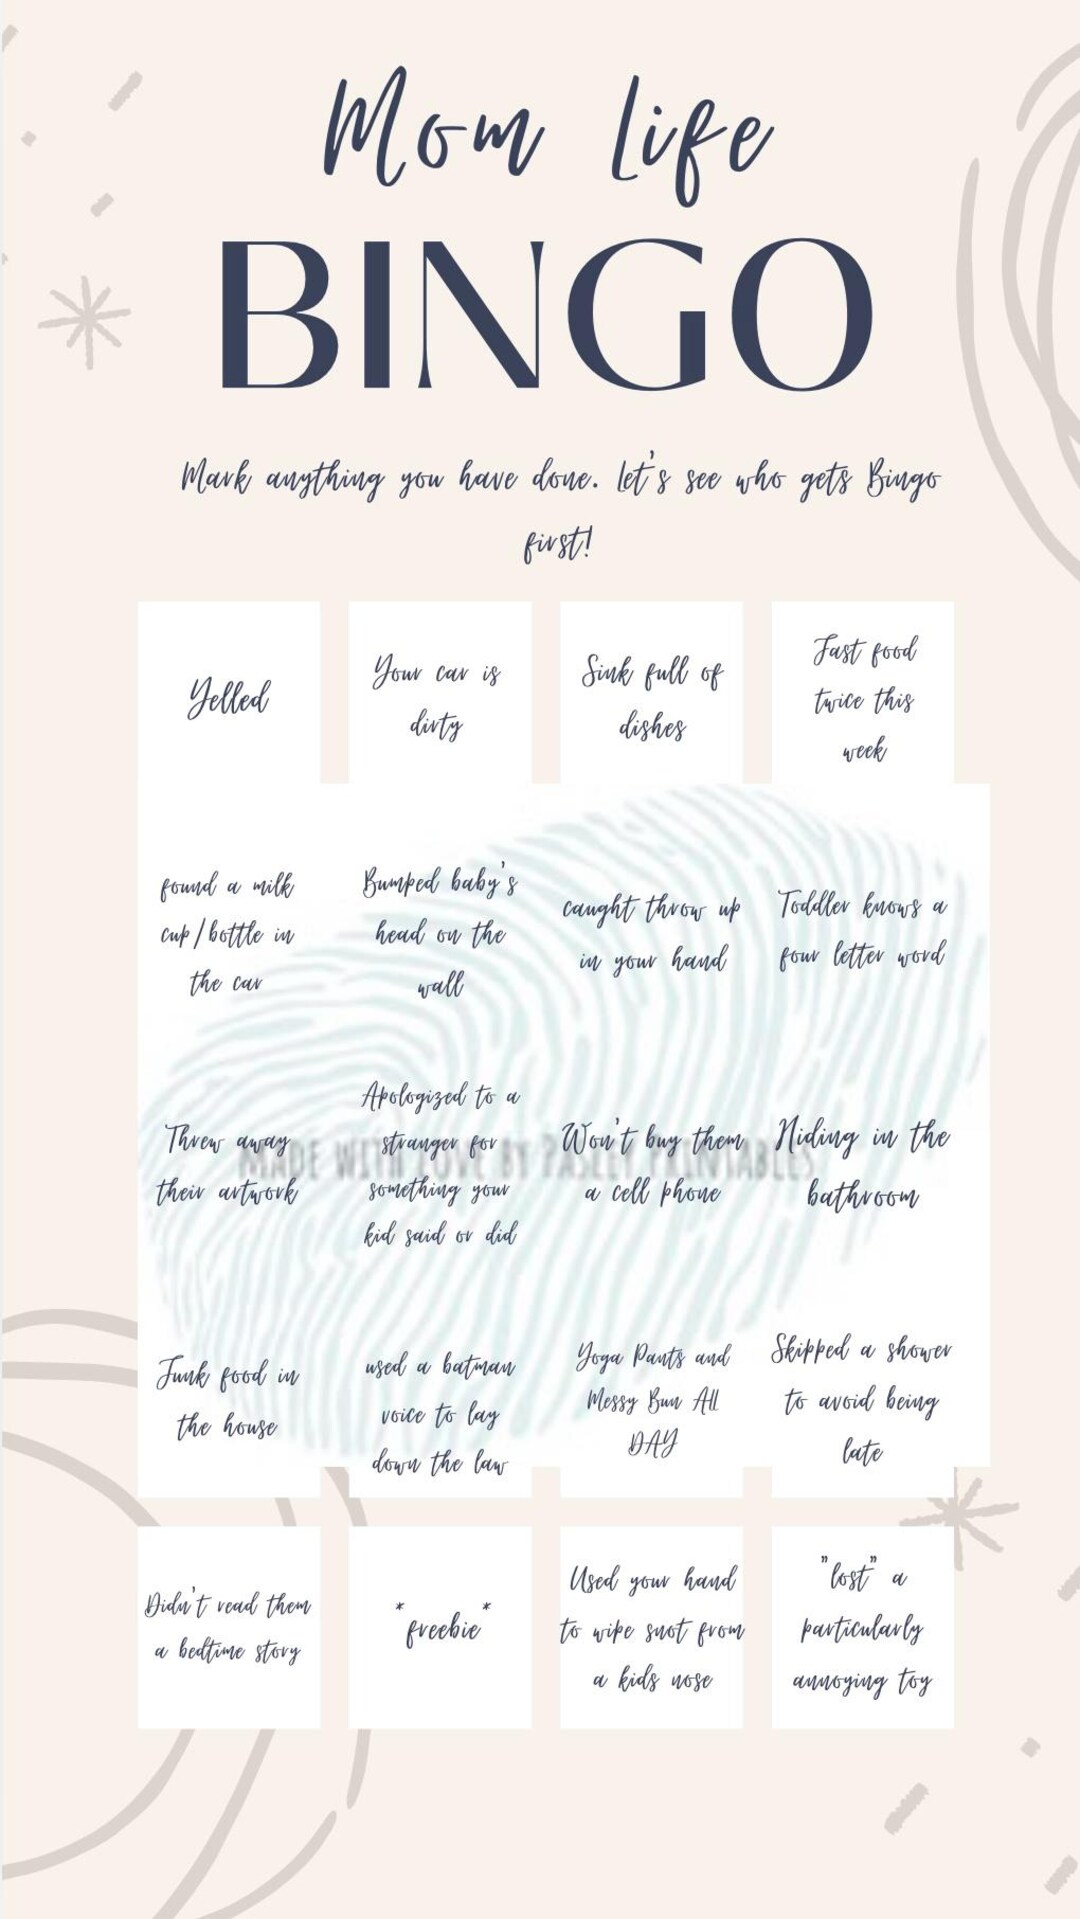 Mom Life
BINGO
Mark anything you have done. let's see who gets Bingo
first!
Yelled
Your car is
dirty
Sink full of
dishes
Fast food
twice this
week
found a milk
cup/bottle in
the car
Bumped baby's
head on the
wall
caught throw up
in your hand
Toddler knows a
four letter word
Threw away
their artwork
Apologized to a
stranger for
something your
kid said or did
Won't buy them
a cell phone
Hiding in the
bathroom
MADE WITH LOVE BY PASLEY PRINTABLES
Junk food in
the house
used a batman
voice to lay
down the law
Yoga Pants and
Messy Bun All
DAY
Skipped a shower
to avoid being
late
Didn't read them
a bedtime story
*freebie*
Used your hand
to wipe snot from
a kids nose
"lost" a
particularly
annoying toy